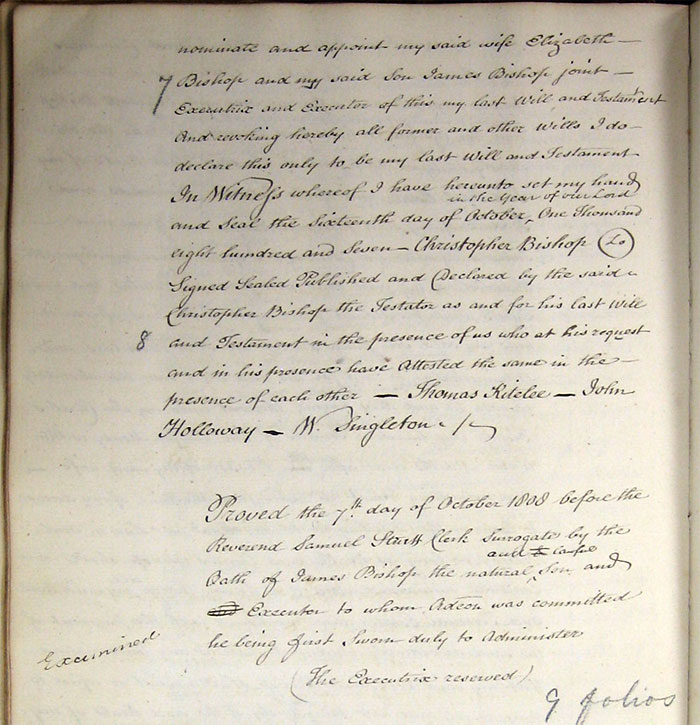 nominate and appoint my said wife Elizabeth —
7 Bishop and my said Son James Bishop joint —
Executrix and Executor of this my last Will and Testament
And revoking hereby all former and other Wills I do —
declare this only to be my last Will and Testament
In Witness whereof I have hereunto set my hand
in the Year of our Lord
and Seal the Sixteenth day of October, One Thousand
eight hundred and Seven — Christopher Bishop
Signed Sealed Published and Declared by the said
Christopher Bishop the Testator as and for his last Will
8 and Testament in the presence of us who at his request
and in his presence have Attested the same in the —
presence of each other — Thomas — John
Holloway — W. Singleton
Proved the 7th day of October 1808 before the
Reverend Samuel Clerk Surrogate by the
and
Oath of James Bishop the natural Son and
Executor to whom Admon was committed
he being first Sworn duly to Administer
Examined
(The Executrix reserved)
9 folios